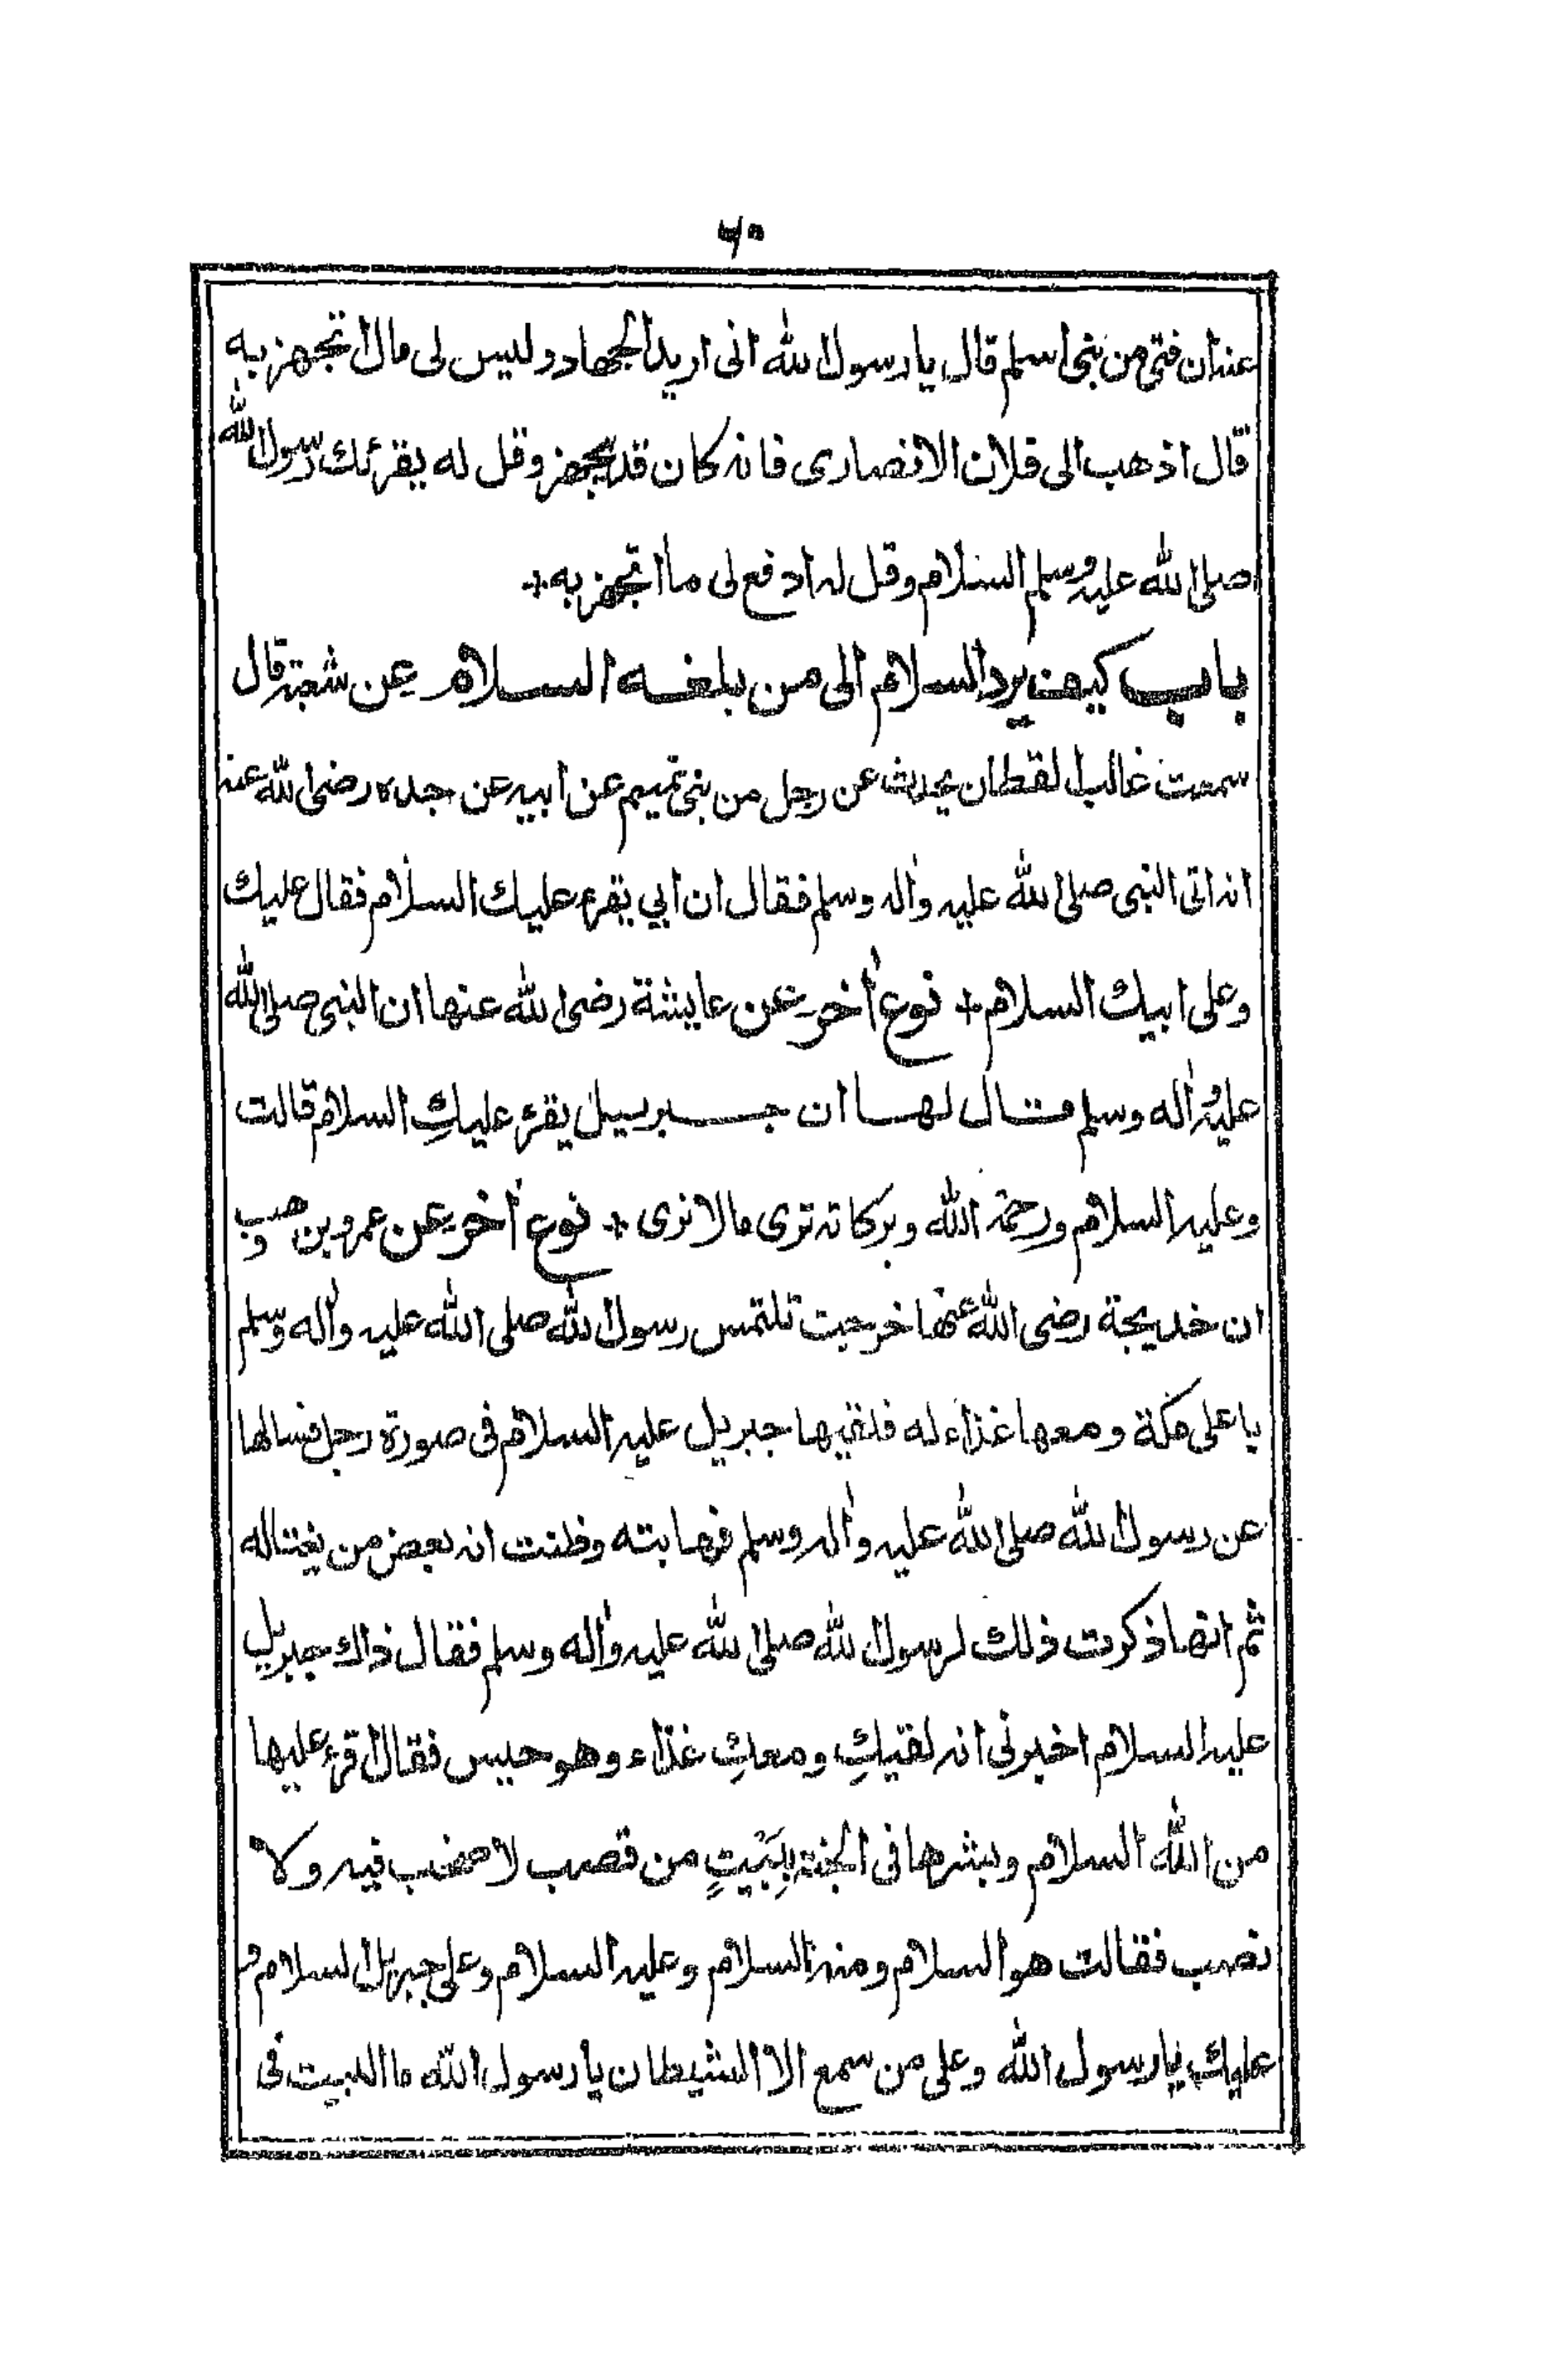 ٦٠
عنه ان فتى من بنى اسلم قال يا رسول الله انى اريد الجهاد وليس لى مال اتجهز به
قال اذهب الى فلان الانصارى فانه كان قد تجهز وقل له يقرئك رسول الله
صلى الله عليه وسلم السلام وقل له ادفع لى ما اتجهز به +
باب كيف يرد السلام الى من بلغه السلام عن شعبة قال
سمعت غالب القطان يحدث عن رجل من بنى تميم عن ابيه عن جده رضى الله عنه
انه اتى النبى صلى الله عليه واٰله وسلم فقال ان ابي يقرء عليك السلام فقال عليك
وعلى ابيك السلام + نوع اٰخر عن عايشة رضى الله عنها ان النبى صلى الله
عليه واٰله وسلم قال لها ان جبرييل يقرء عليكِ السلام قالت
وعليه السلام ورحمة الله وبركاته ترى ما لا نرى + نوع اٰخر عن عمرو بن وهب
ان خديجة رضى الله عنها خرجت تلتمس رسول الله صلى الله عليه واٰله وسلم
باعلى مكة ومعها غذاء له فلقيها جبريل عليه السلام فى صورة رجل فسالها
عن رسول الله صلى الله عليه واٰله وسلم فهابته وظنت انه بعض من يغتاله
ثم انها ذكرت ذلك لرسول الله صلى الله عليه واٰله وسلم فقال ذاك جبريل
عليه السلام اخبرنى انه لقيكِ ومعكِ غذاء وهو حيس فقال اقرء عليها
من الله السلام وبشرها فى الجنة بِبَيتٍ من قصب لا صخب فيه ولا
نصب فقالت هو السلام ومنه السلام وعليه السلام وعلى جبريل السلام و
عليك يا رسول الله وعلى من سمع الا الشيطان يا رسول الله ما البيت فى